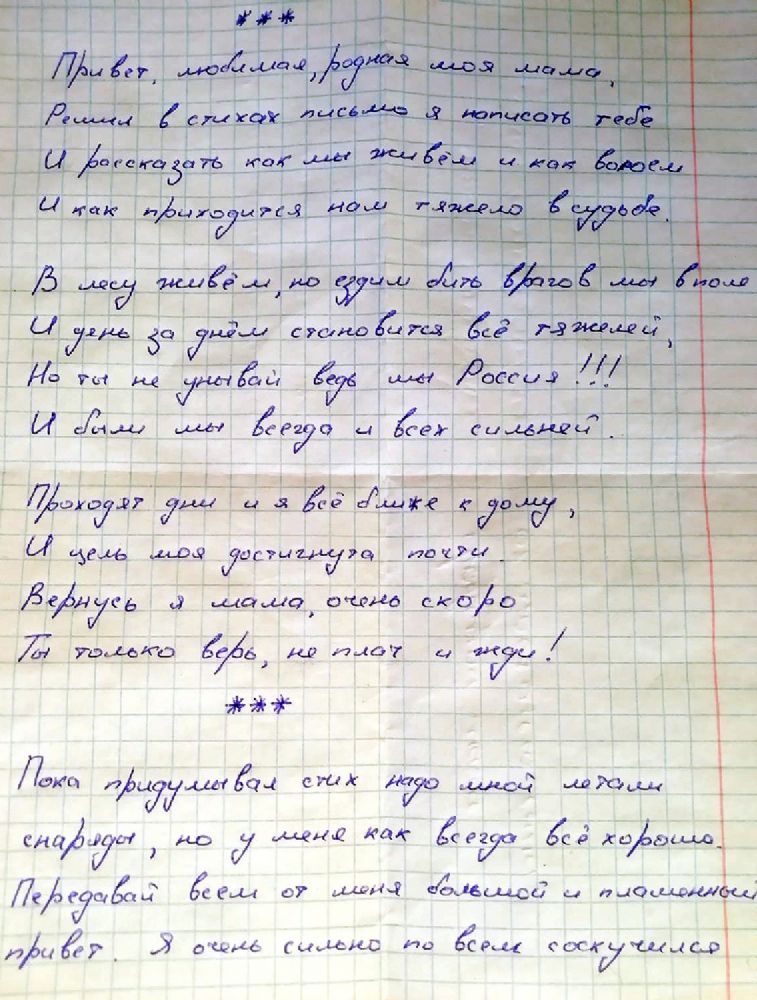 ***
Привет, любимая, родная моя мама,
Решил в стихах письмо я написать тебе
И рассказать как мы живём и как воюем
И как приходится нам тяжело в судьбе.
В лесу живём, но ездим бить врагов мы в поле
И день за днём становится всё тяжелей,
Но ты не унывай ведь мы Россия!!!
И были мы всегда и всех сильней.
Проходят дни и я всё ближе к дому,
И цель моя достигнута почти.
Вернусь я мама, очень скоро
Ты только верь, не плач и жди!
***
Пока придумывал стих надо мной летали
снаряды, но у меня как всегда всё хорошо.
Передавай всем от меня большой и пламенный
привет. Я очень сильно по всем соскучился